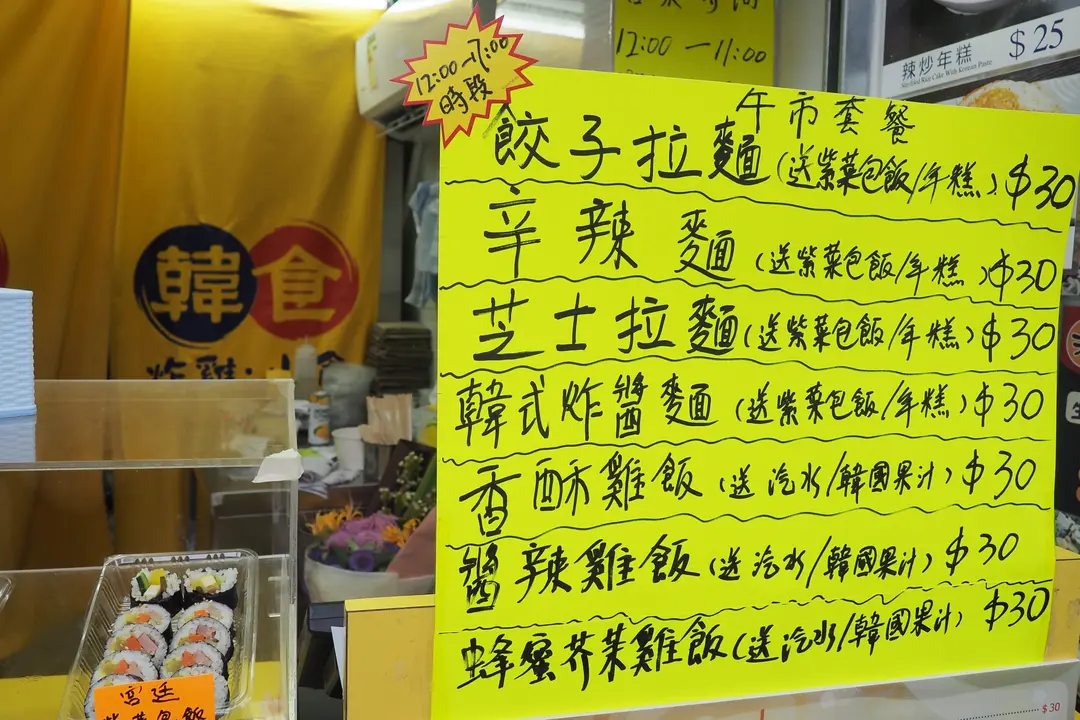 12:00一17:00
時段
12:00 — 11:00
辣炒年糕 $25
Stir-fried Rice Cake With Korean Paste
午市套餐
餃子拉麵(送紫菜包飯/年糕)$30
辛辣麵(送紫菜包飯/年糕)$30
芝士拉麵(送紫菜包飯/年糕)$30
韓式炸醬麵(送紫菜包飯/年糕)$30
香酥雞飯(送汽水/韓國果汁)$30
醬辣雞飯(送汽水/韓國果汁)$30
蜂蜜芥茉雞飯(送汽水/韓國果汁)$30
韓食
炸雞·小食
宮廷
紫菜包飯
$30